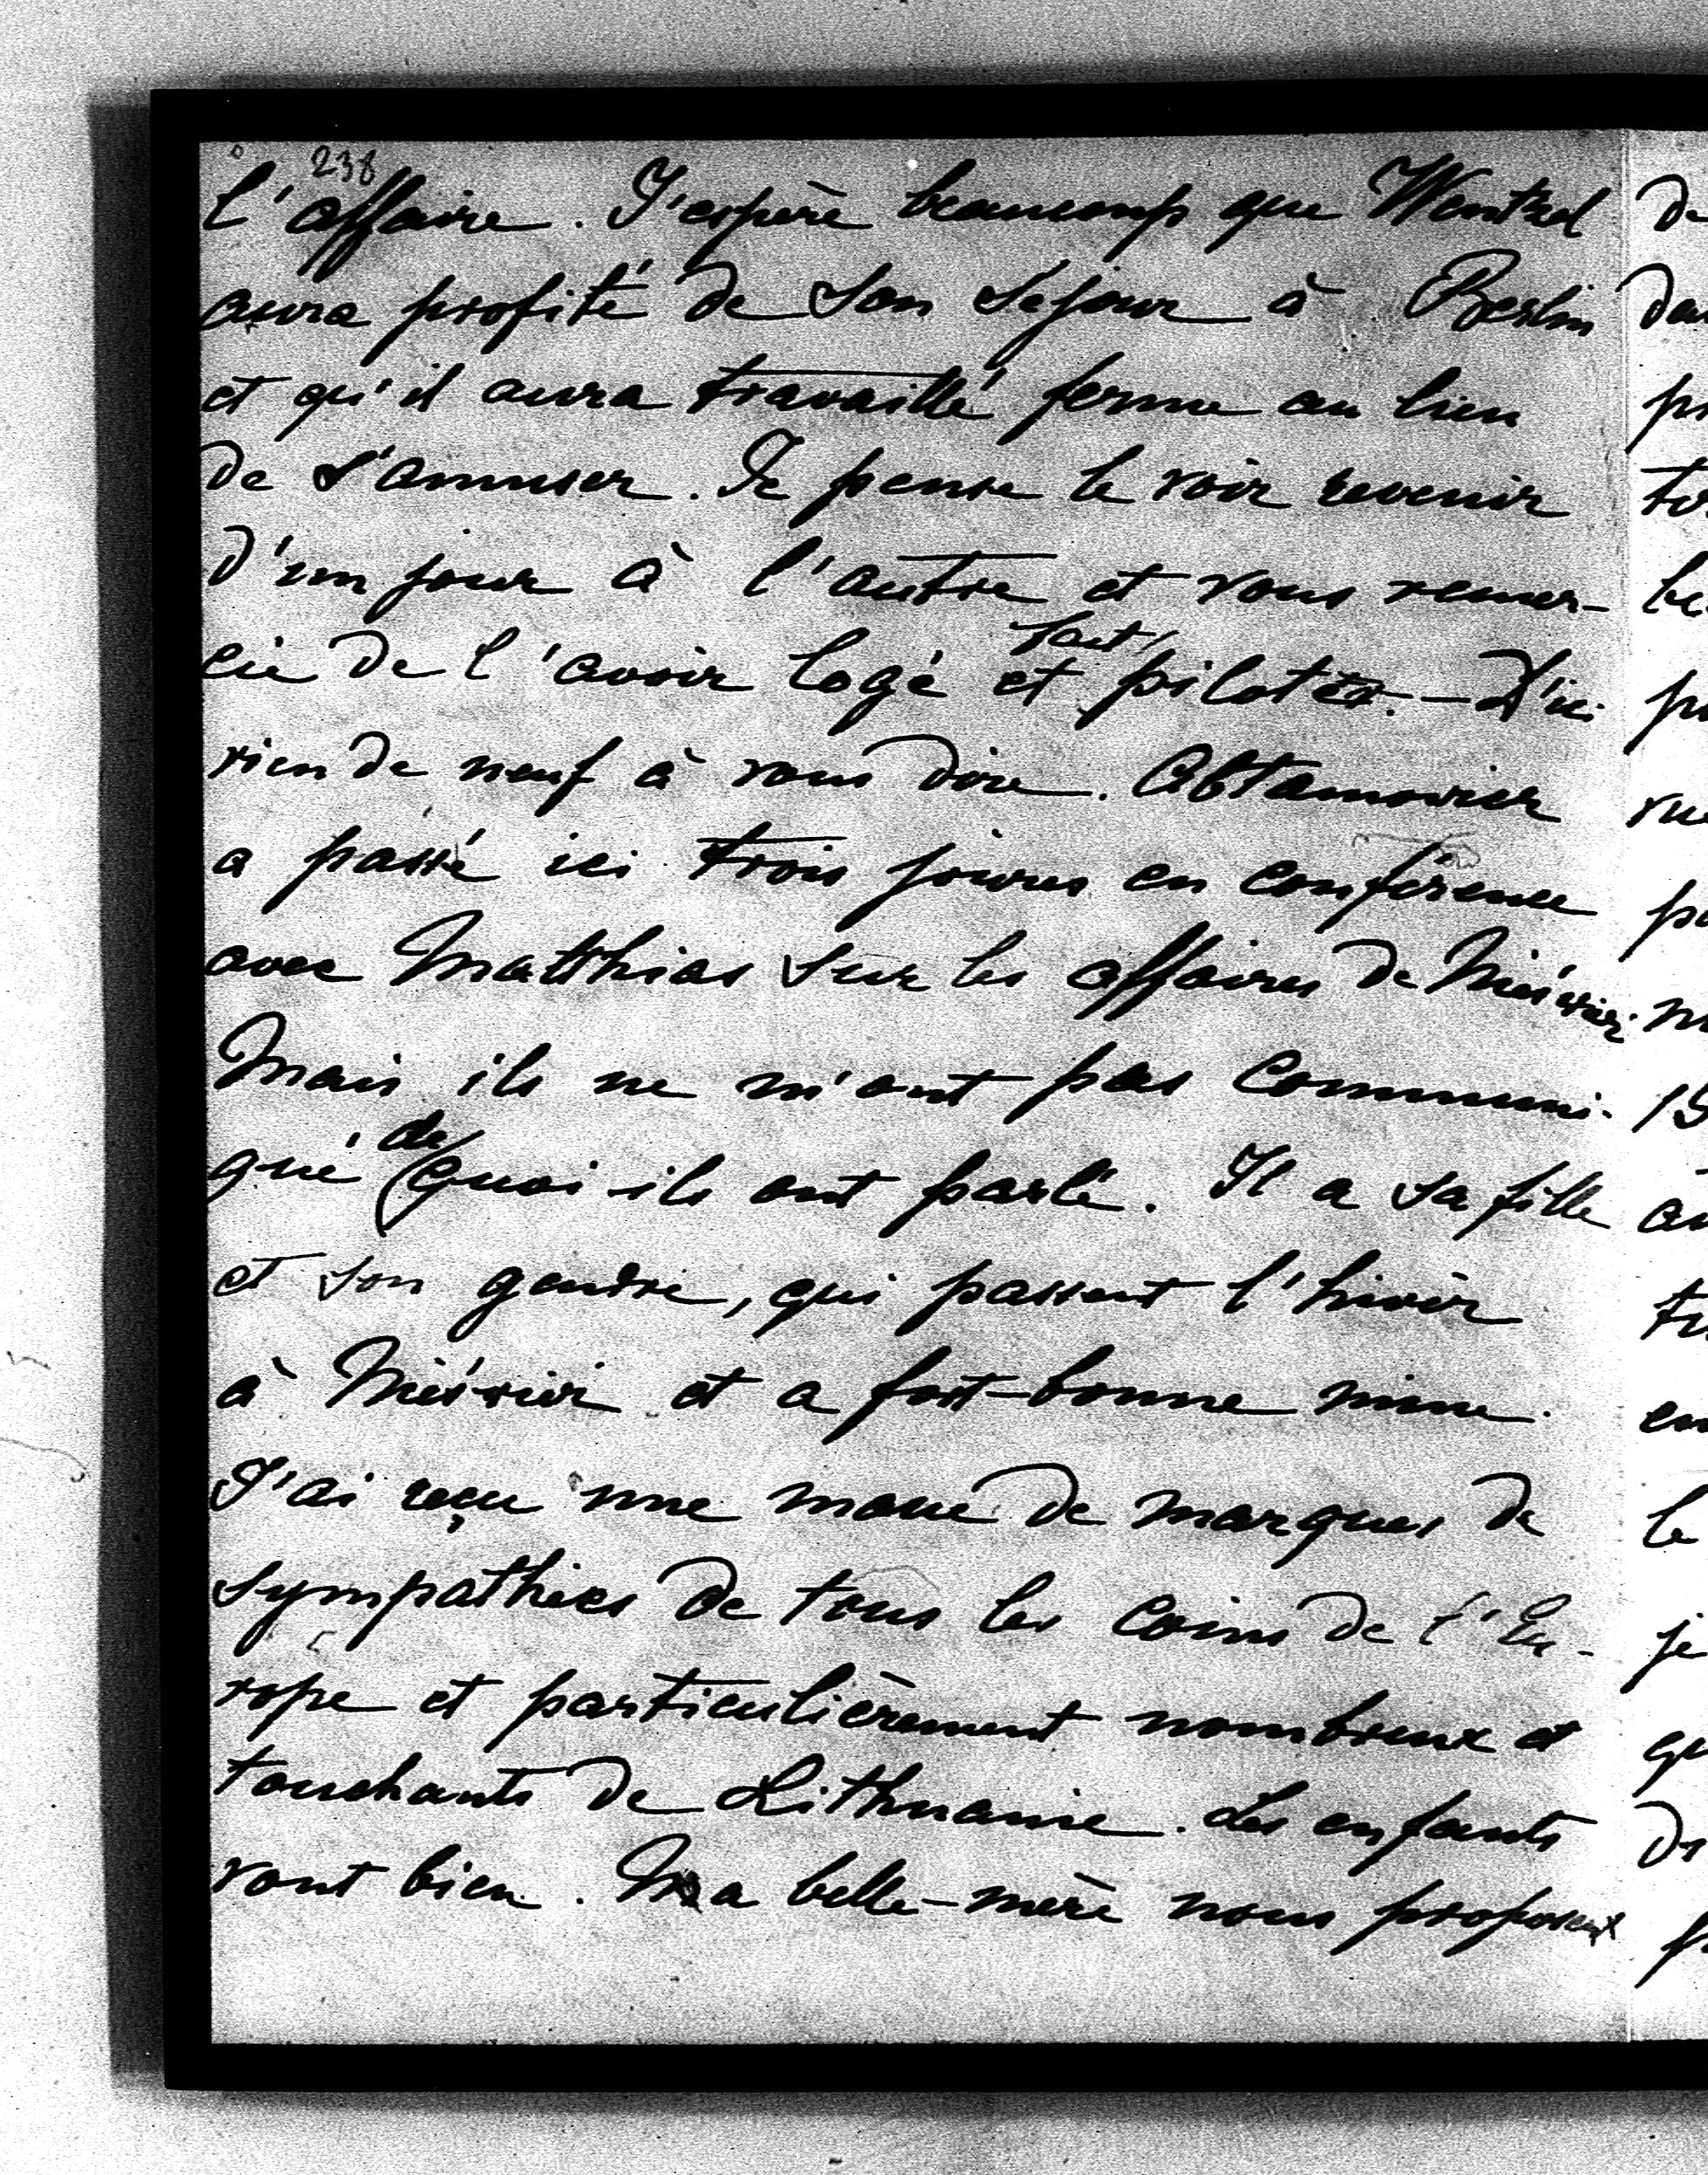 238
l'affaire. J'espère beaucoup que Wentzel
aura profité de son séjour à Berlin
et qu'il aura travaillé ferme au lieu
de s'amuser. Je pense le voir revenir
d'un jour à l'autre et vous remer-
cie de l'avoir logé et piloté. — D'ici
rien de neuf à vous dire. Abtamovicz
a passé ici trois jours en conférence
avec Matthias sur les affaires de Nieśwież
Mais ils ne m'ont pas communi-
qué de quoi ils ont parlé. Il a sa fille
et son gendre, qui passent l'hivèr
à Nieświez et a fort-bonne mine.
J'ai reçu une masse de marques de
sympathies de tous les coins de l'Eu-
rope et particulièrement nombreux et
touchants de Lithuanie. Les enfants
vont bien. Ma belle-mère nous propose